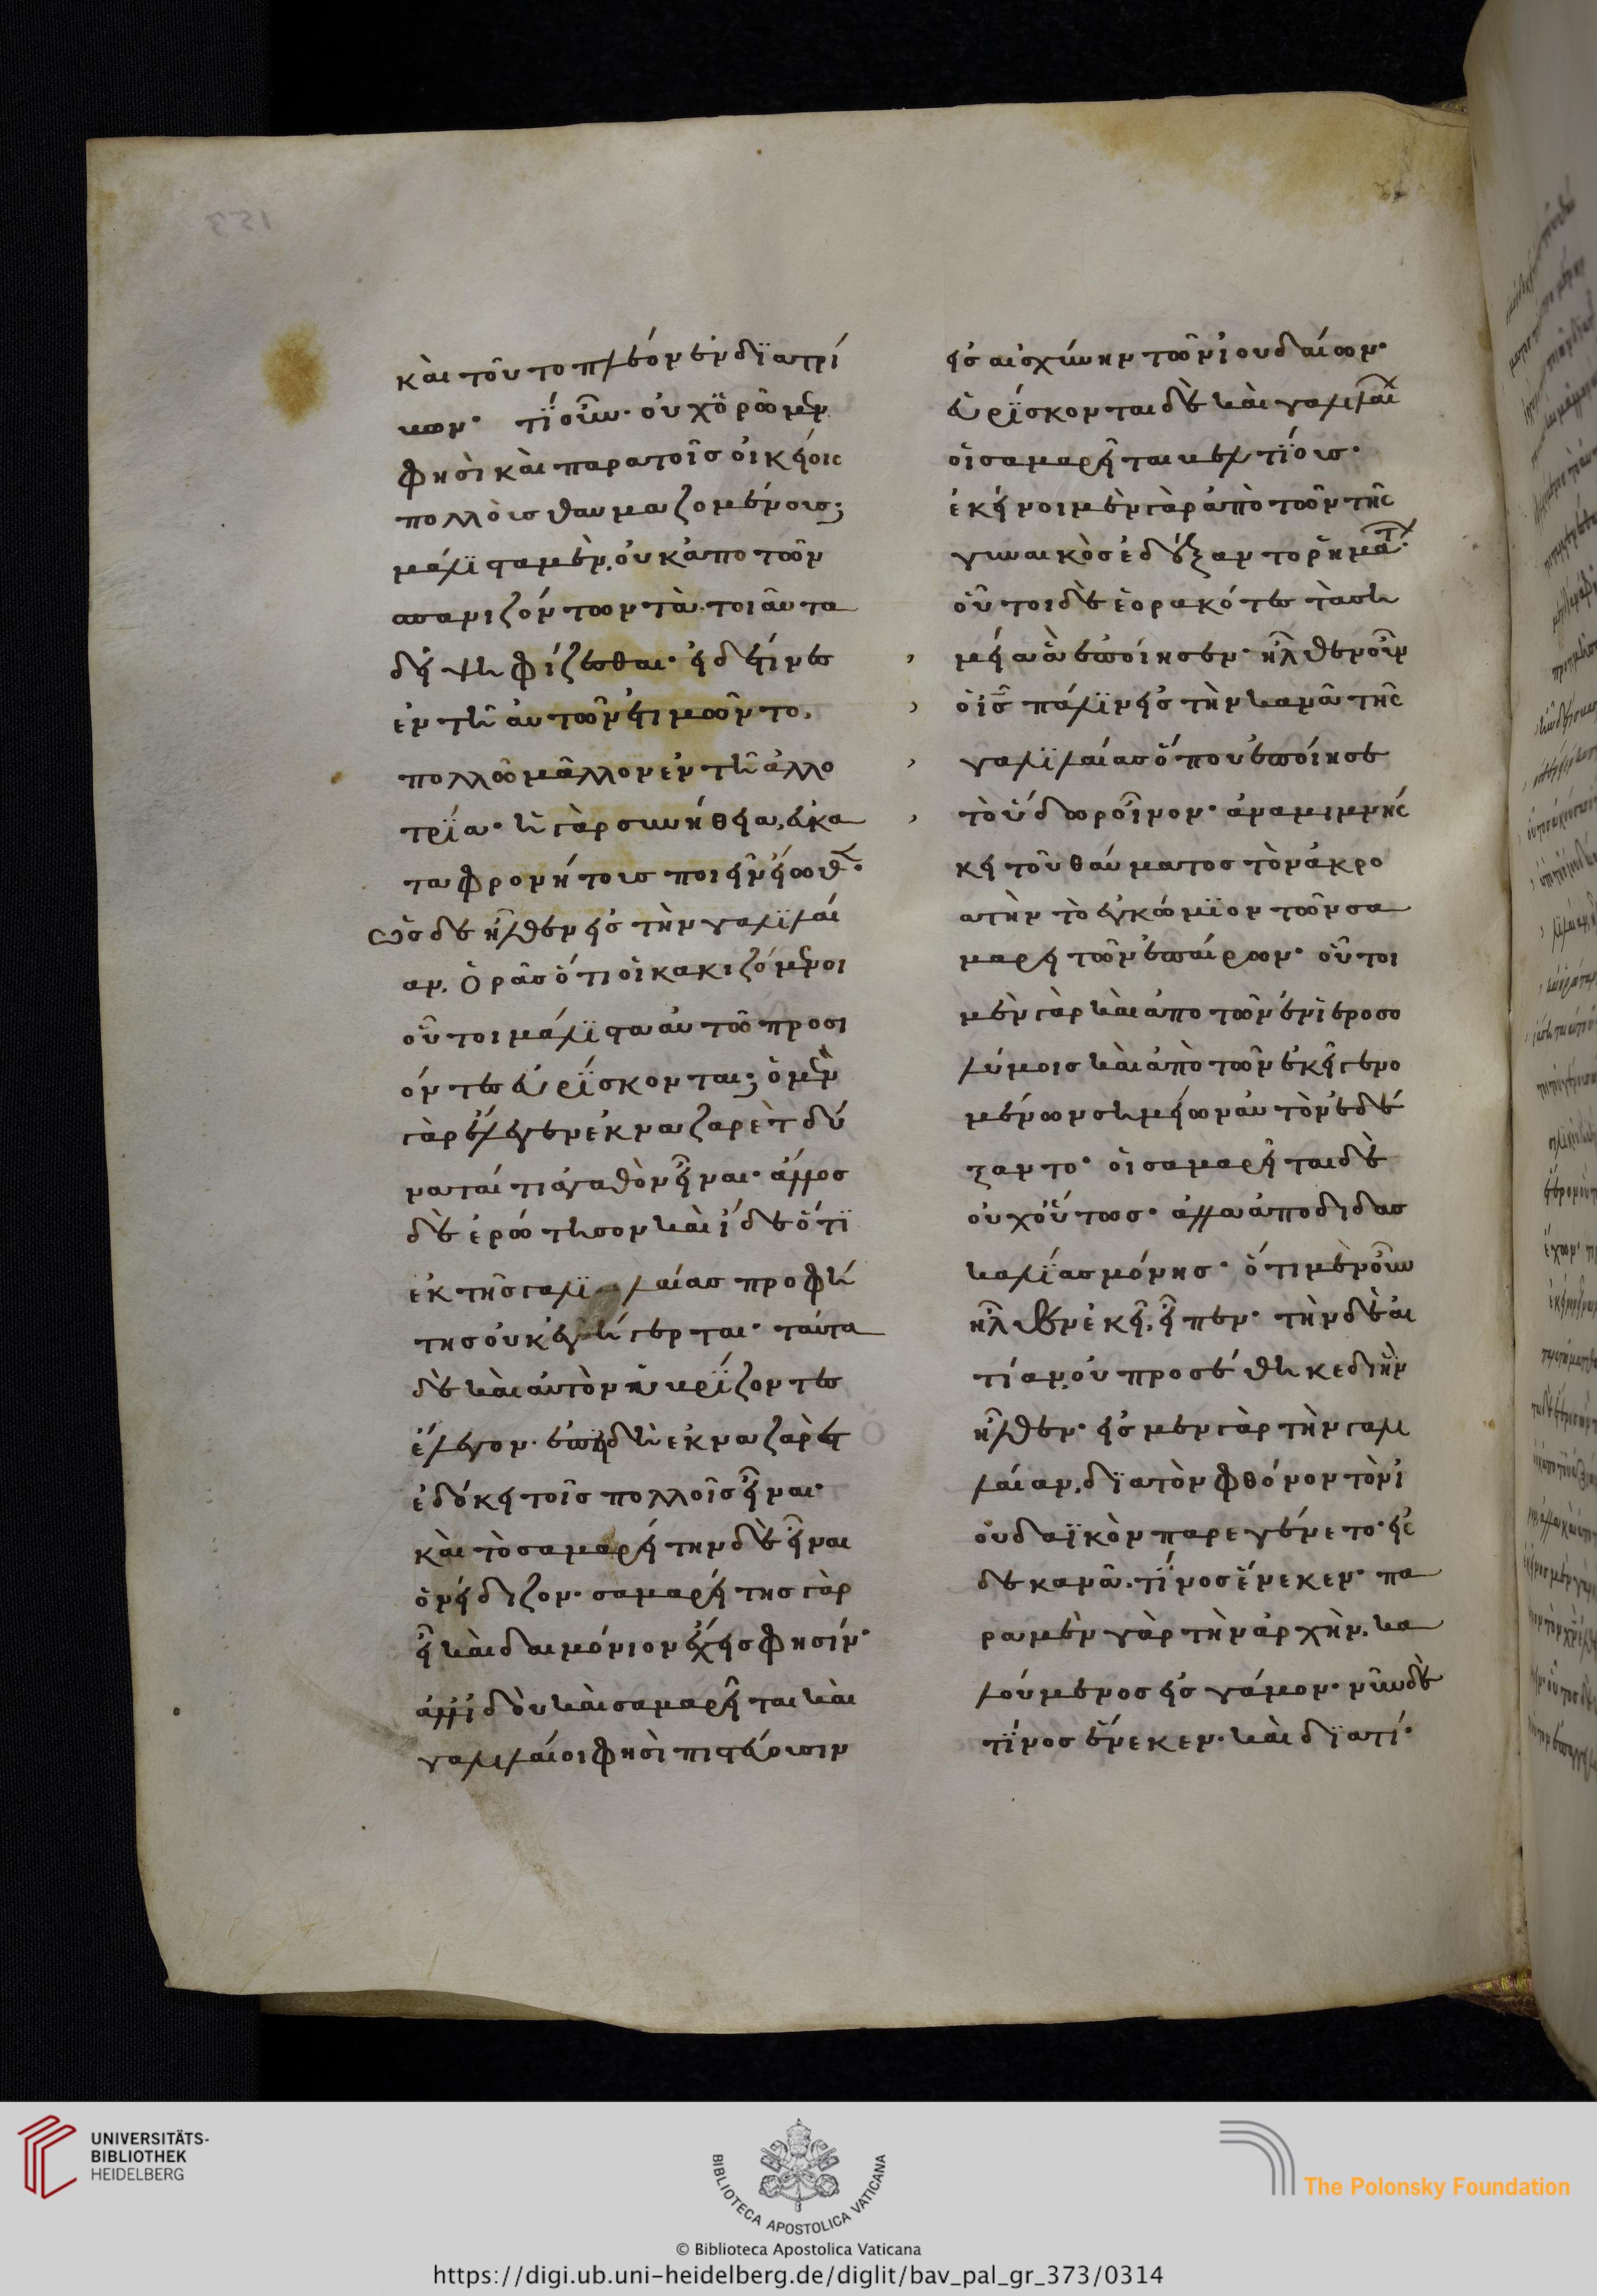 καὶ τοῦτο πλέον ἐνδϊατρί
βων· τί οὖν· οὐχ ὁρῶμεν
φησὶ καὶ παρα τοῖσ οἰκείοις
πολλοὺς θαυμαζομένους;
μάλιστα μὲν, οὐκ ἀπο τῶν
σπανιζόντων τὰ τοιαῦτα
δεῖ ψηφίζεσθαι· εἰ δέ τινες
ἐν τῆ αὐτῶν ἐτιμῶντο,
πολλῶ μᾶλλον ἐν τῆ ἀλλο
τρία· ἡ γὰρ συνήθεια, εὐκα
ταφρονήτους ποιεῖν εἴωθε·
ὡς δὲ ἦλθεν εἰσ τὴν γαλιλαί
αν. Ὁρᾶσ ὅτι οἱ κακιζόμενοι
οὗτοι μάλιστα αὐτῶ προσι
όντες εὑρίσκονται; ὁ μὲν
γὰρ ἔλεγεν ἐκ ναζαρὲτ δύ
ναταί τι ἀγαθὸν εἶναι· ἄλλος
δὲ ἐρώτησον καὶ ἴδε ὅτι
ἐκ τῆσ γαλιλαίασ προφή
τησ οὐκ ἐγήγερται· ταῦτα
δὲ καὶ αὐτὸν ὑβρίζοντες
ἔλεγον. ἐπειδὴ ἐκ ναζαρὲτ
ἐδόκει τοῖσ πολλοῖσ εἶναι·
καὶ τὸ σαμαρείτην δὲ εἶναι
ὀνείδιζον· σαμαρείτησ γὰρ
εἶ καὶ δαιμόνιον ἔχεισ φησίν·
ἀλλ' ἰδοὺ καὶ σαμαρεῖται καὶ
γαλιλαίοι φησὶ πιστεύουσιν
εἰσ αἰσχύνην τῶν ἰουδαίων·
εὑρίσκονται δὲ καὶ γαλιλαί
οἱ σαμαρεῖται βελτίους·
ἐκεῖνοι μὲν γὰρ ἀπὸ τῶν τῆς
γυναικὸσ ἐδέξαντο ῥημάτ·
οὗτοι δὲ ἑορακότες τὰ ση
μεῖα ἃ ἐποίησεν· ἦλθεν οὖν
ὁ ις πάλιν εἰσ τὴν κανᾶ τῆς
γαλιλαίασ ὅπου ἐποίησε
τὸ ὕδωρ οἶνον· ἀναμιμνής
κει τοῦ θαύματοσ τὸν ἀκρο
ατὴν τὸ ἐγκώμϊον τῶν σα
μαρειτῶν ἐπαίρων· οὗτοι
μὲν γὰρ καὶ ἀπο τῶν ἐν ἱεροσο
λύμοισ καὶ ἀπὸ τῶν ἐκεῖ γενο
μένων σημείων αὐτὸν ἐδέ
ξαντο· οἱ σαμαρεῖται δὲ
οὐχ οὕτωσ· ἀλλα ἀπο διδασ
καλίασ μόνησ· ὅτι μὲν οὖν
ἦλθεν ἐκεῖ, εἶπεν· τὴν δὲ αἰ
τίαν, οὐ προσέθηκε δι' ἣν
ἦλθεν· εἰσ μεν γὰρ τὴν γαλι
λαίαν, δϊα τὸν φθόνον τὸν ἰ
ουδαϊκὸν παρεγένετο· εἰς
δε κανᾶ. τίνοσ ἕνεκεν· πα
ρα μὲν γὰρ τὴν ἀρχὴν. κα
λούμενοσ εἰσ γάμον· νῦν δὲ
τίνοσ ἕνεκεν· καὶ δϊατί·
UNIVERSITÄTS-
BIBLIOTHEK
HEIDELBERG
BIBLIOTECA APOSTOLICA VATICANA
© Biblioteca Apostolica Vaticana
The Polonsky Foundation
https://digi.ub.uni-heidelberg.de/diglit/bav_pal_gr_373/0314